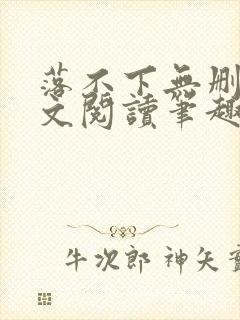 落不下無删
文閱讀筆趣
牛次郎 神矢